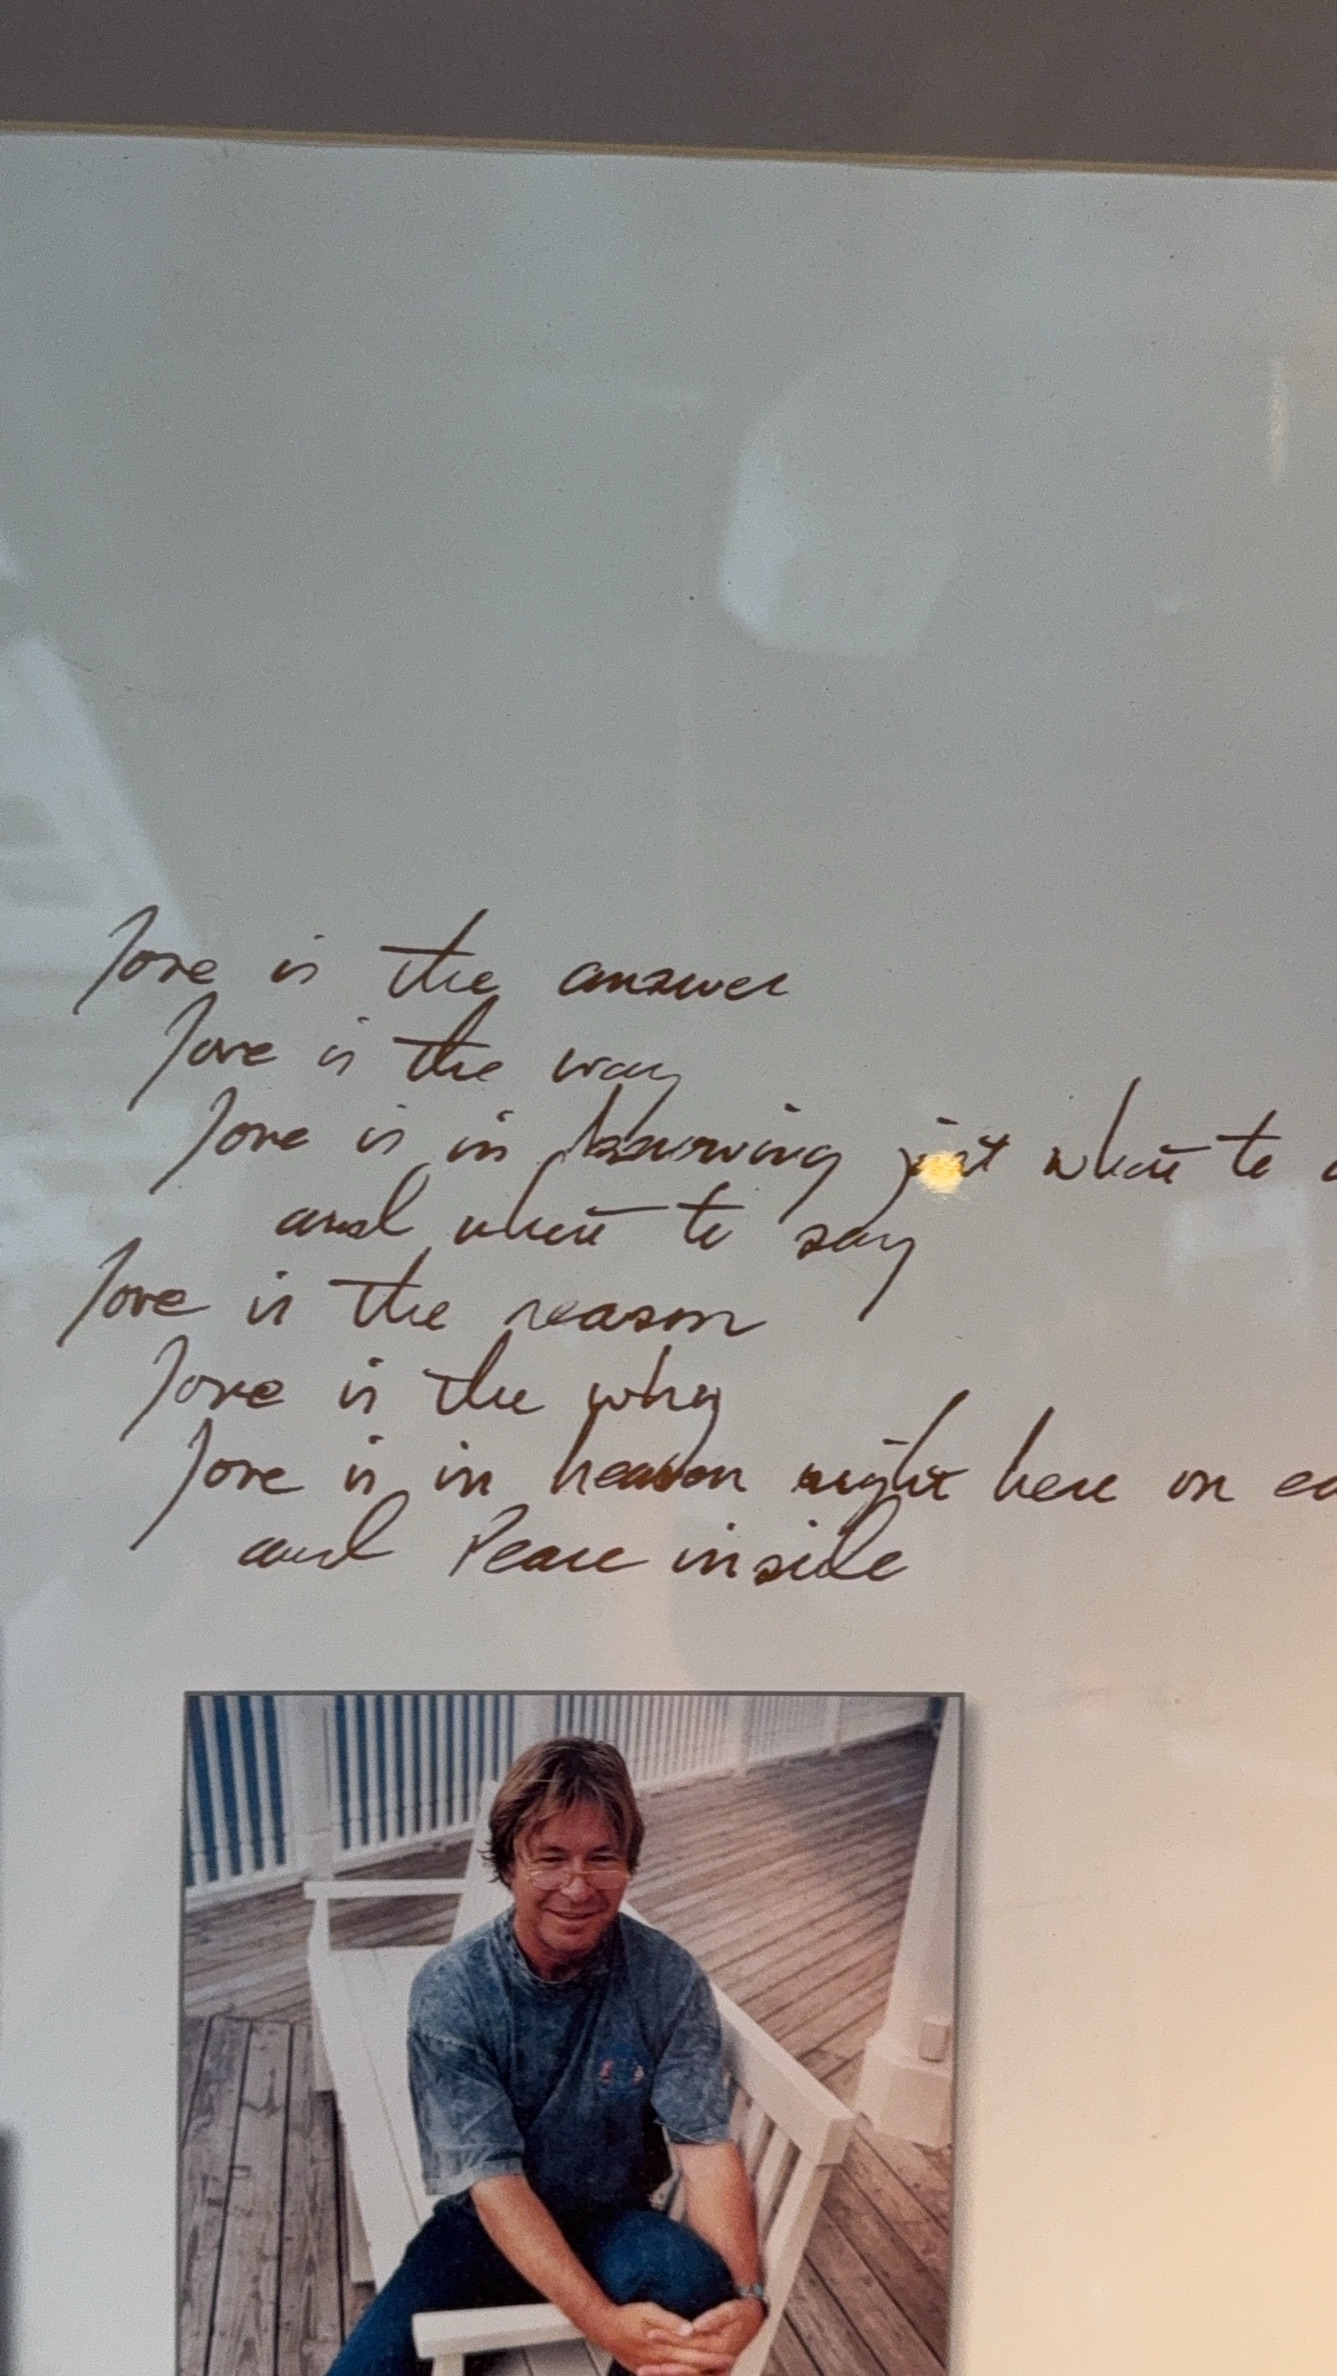 Love is the answer
Love is the way
Love is in knowing just what to
and what to say
Love is the reason
Love is the why
Love is in heaven right here on
and Peace inside